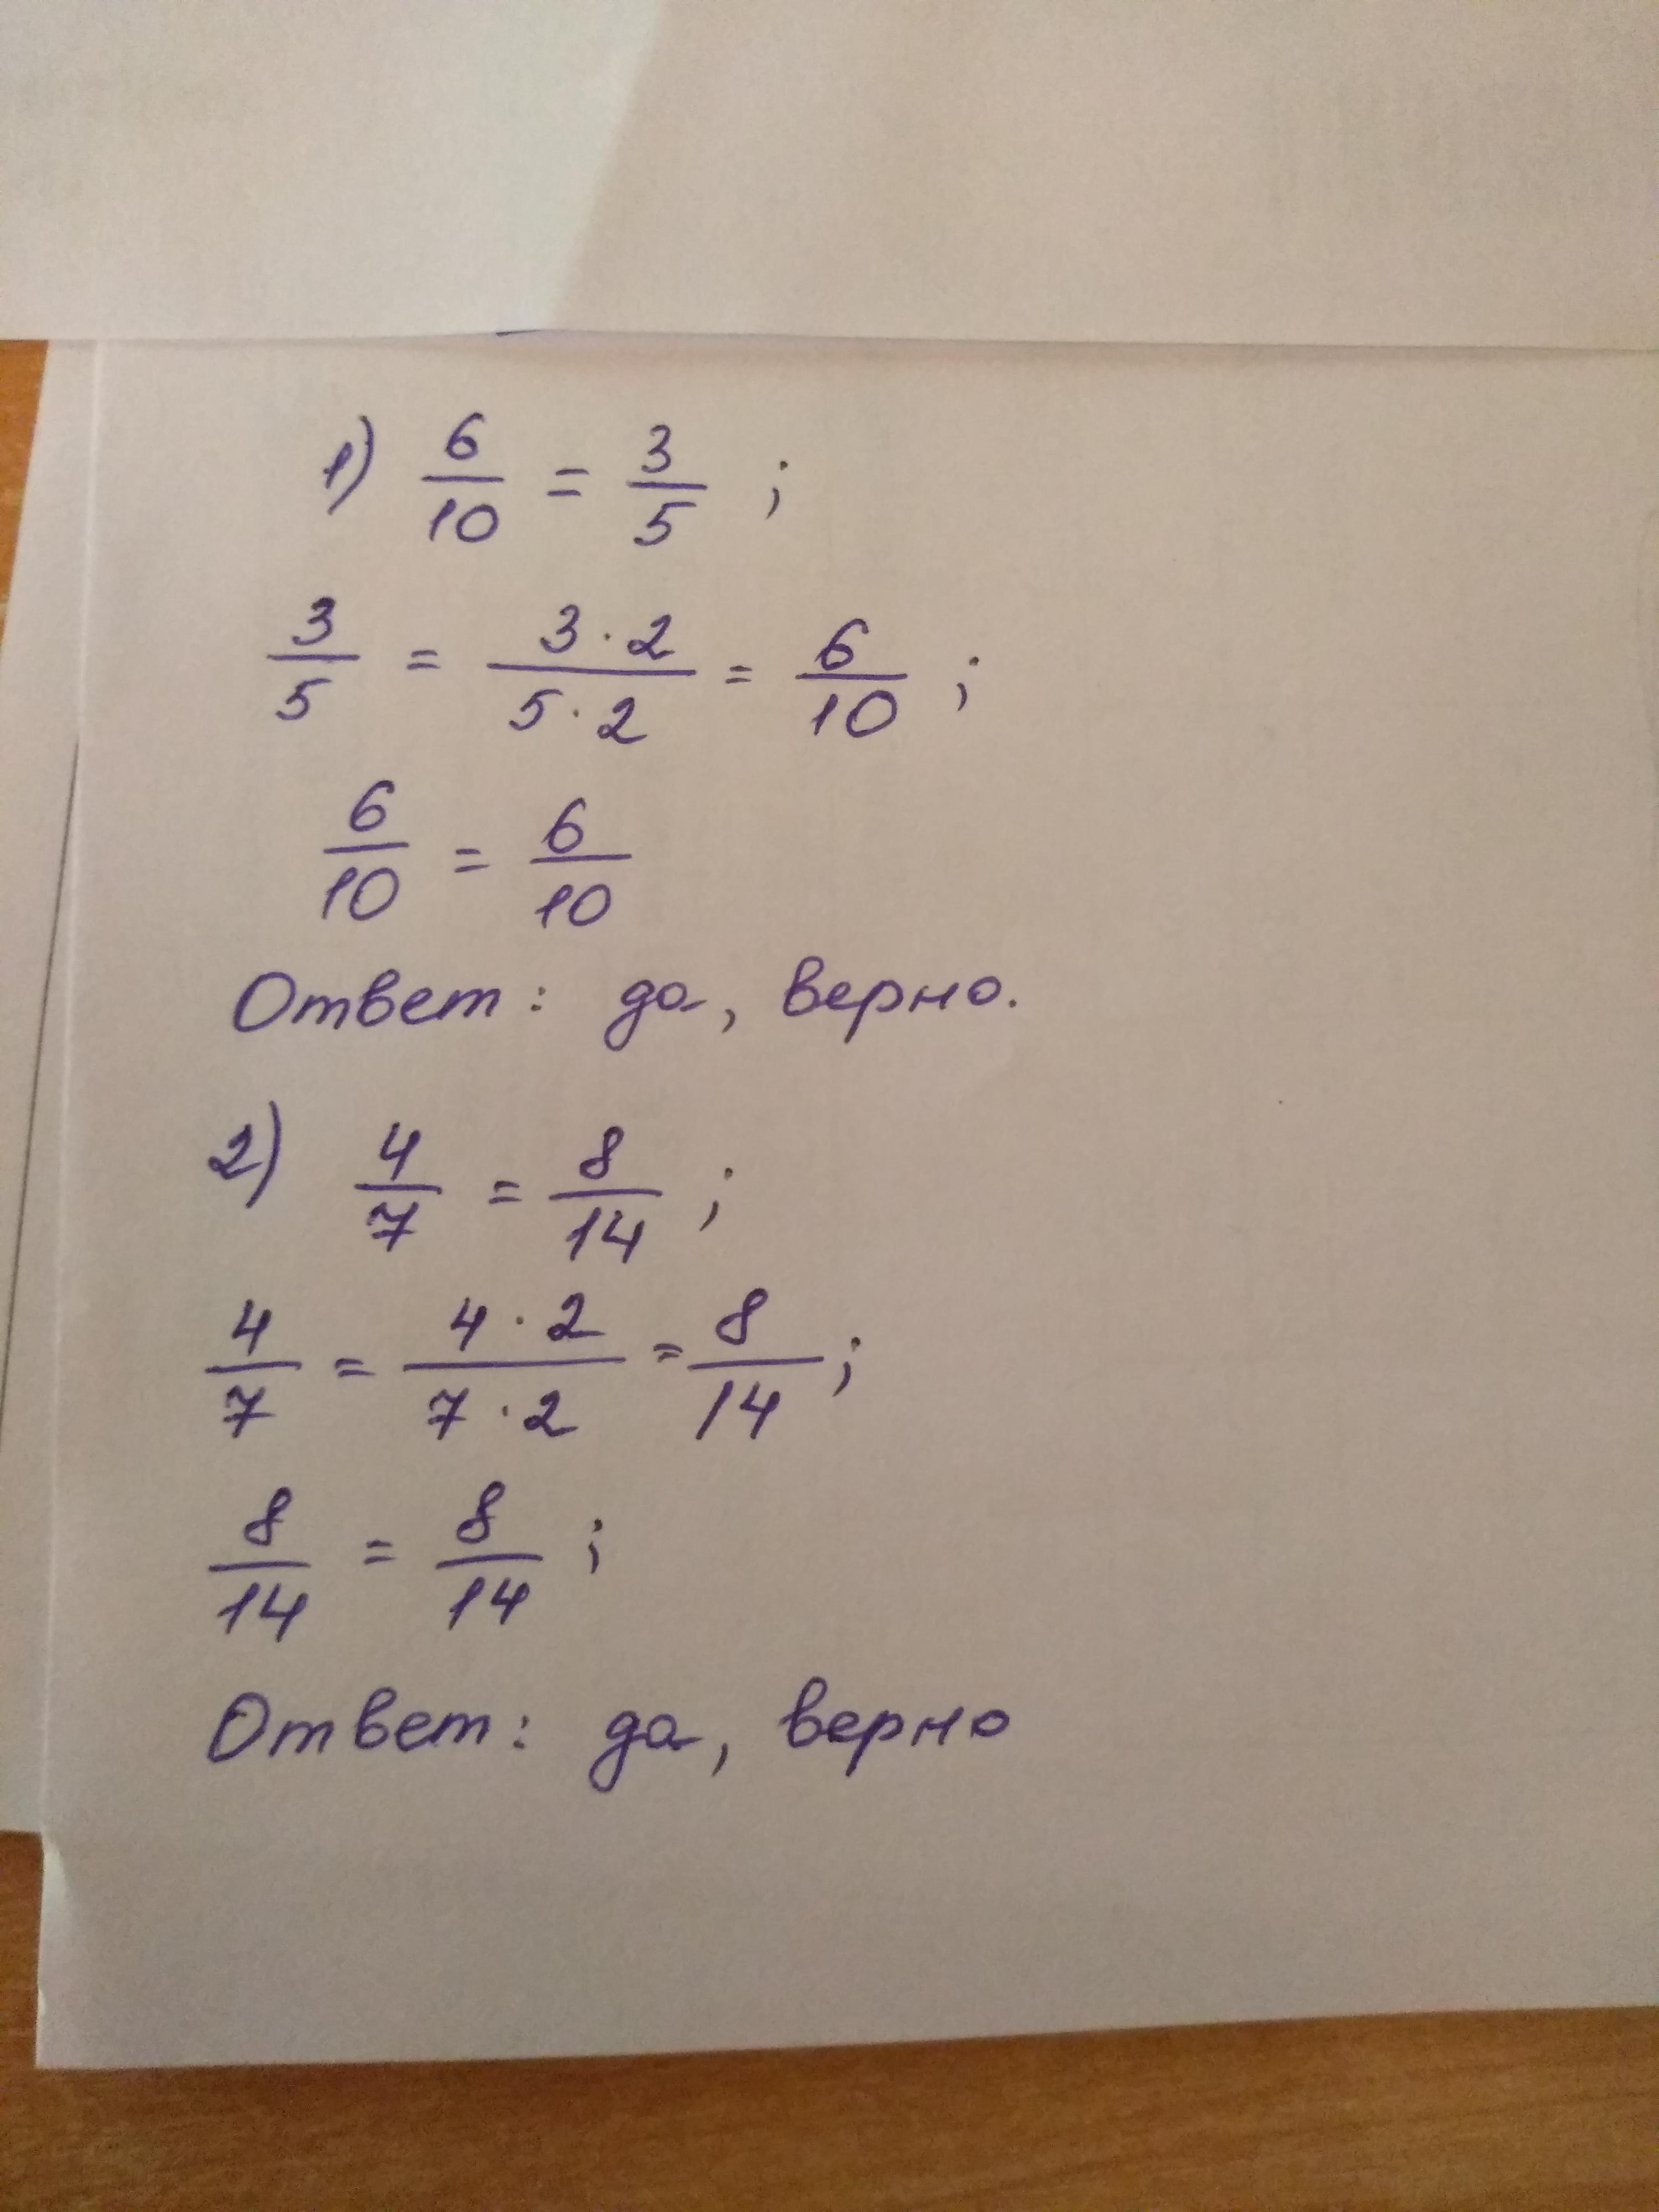 1) 6/10 = 3/5 ;
3/5 = 3·2/5·2 = 6/10 ;
6/10 = 6/10
Ответ: да, верно.
2) 4/7 = 8/14 ;
4/7 = 4·2/7·2 = 8/14 ;
8/14 = 8/14 ;
Ответ: да, верно